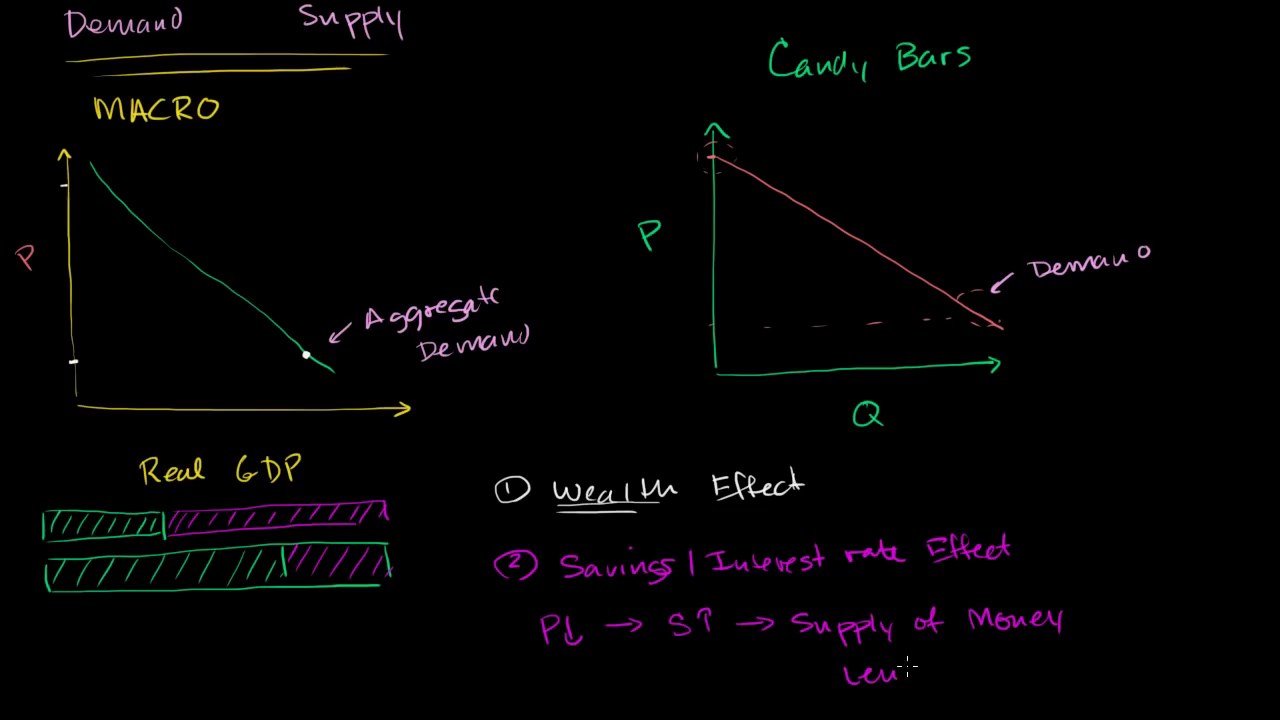 Demand Supply
MACRO
P
Aggregate
Demand
Real GDP
Candy Bars
P
Demand
Q
① Wealth Effect
② Savings / Interest rate Effect
P↓ → S↑ → Supply of Money
Len